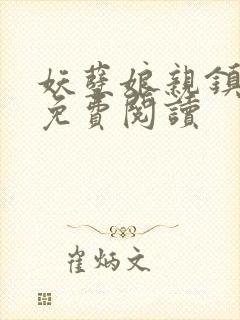 妖孽娘親鎮
免費閱讀
崔炳文